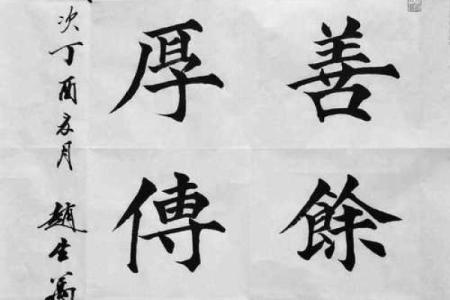 善餘
厚傳
次丁酉夏月 趙生